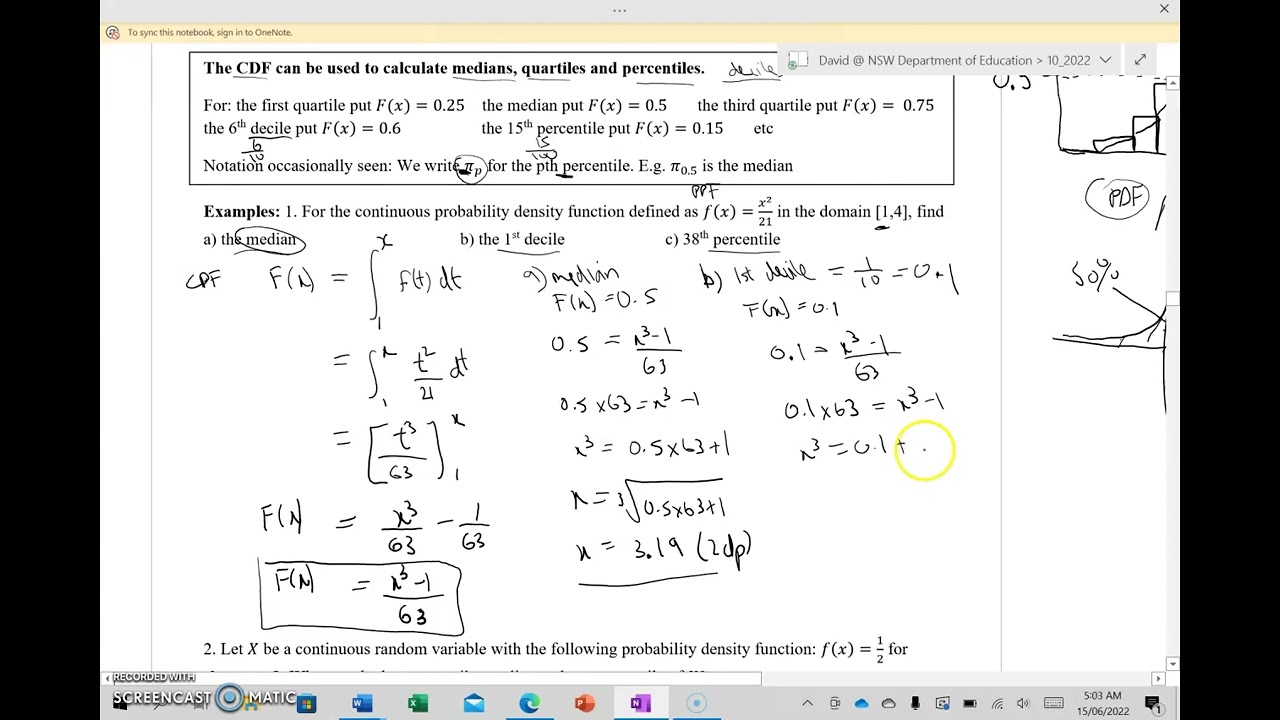 To sync this notebook, sign in to OneNote.
David @ NSW Department of Education > 10_2022
The CDF can be used to calculate medians, quartiles and percentiles. decile
For: the first quartile put F(x) = 0.25 the median put F(x) = 0.5 the third quartile put F(x) = 0.75
the 6th decile put F(x) = 0.6 the 15th percentile put F(x) = 0.15 etc
6/10 15/100
Notation occasionally seen: We write πp for the pth percentile. E.g. π0.5 is the median
Examples: 1. For the continuous probability density function defined as f(x) = x²/21 in the domain [1,4], find
a) the median b) the 1st decile c) 38th percentile
F(x) = ∫₁ˣ f(t) dt
= ∫₁ˣ t²/21 dt
= [t³/63]₁ˣ
F(x) = x³/63 − 1/63
F(x) = x³−1/63
a) median
F(x) = 0.5
0.5 = x³−1/63
0.5 × 63 = x³ − 1
x³ = 0.5 × 63 + 1
x = ³√0.5×63+1
x = 3.19 (2dp)
b) 1st decile = 1/10 = 0.1
F(x) = 0.1
0.1 = x³−1/63
0.1 × 63 = x³ − 1
x³ = 0.1 +
0.5
PDF
50%
2. Let X be a continuous random variable with the following probability density function: f(x) = 1/2 for
RECORDED WITH
SCREENCAST MATIC
5:03 AM
15/06/2022